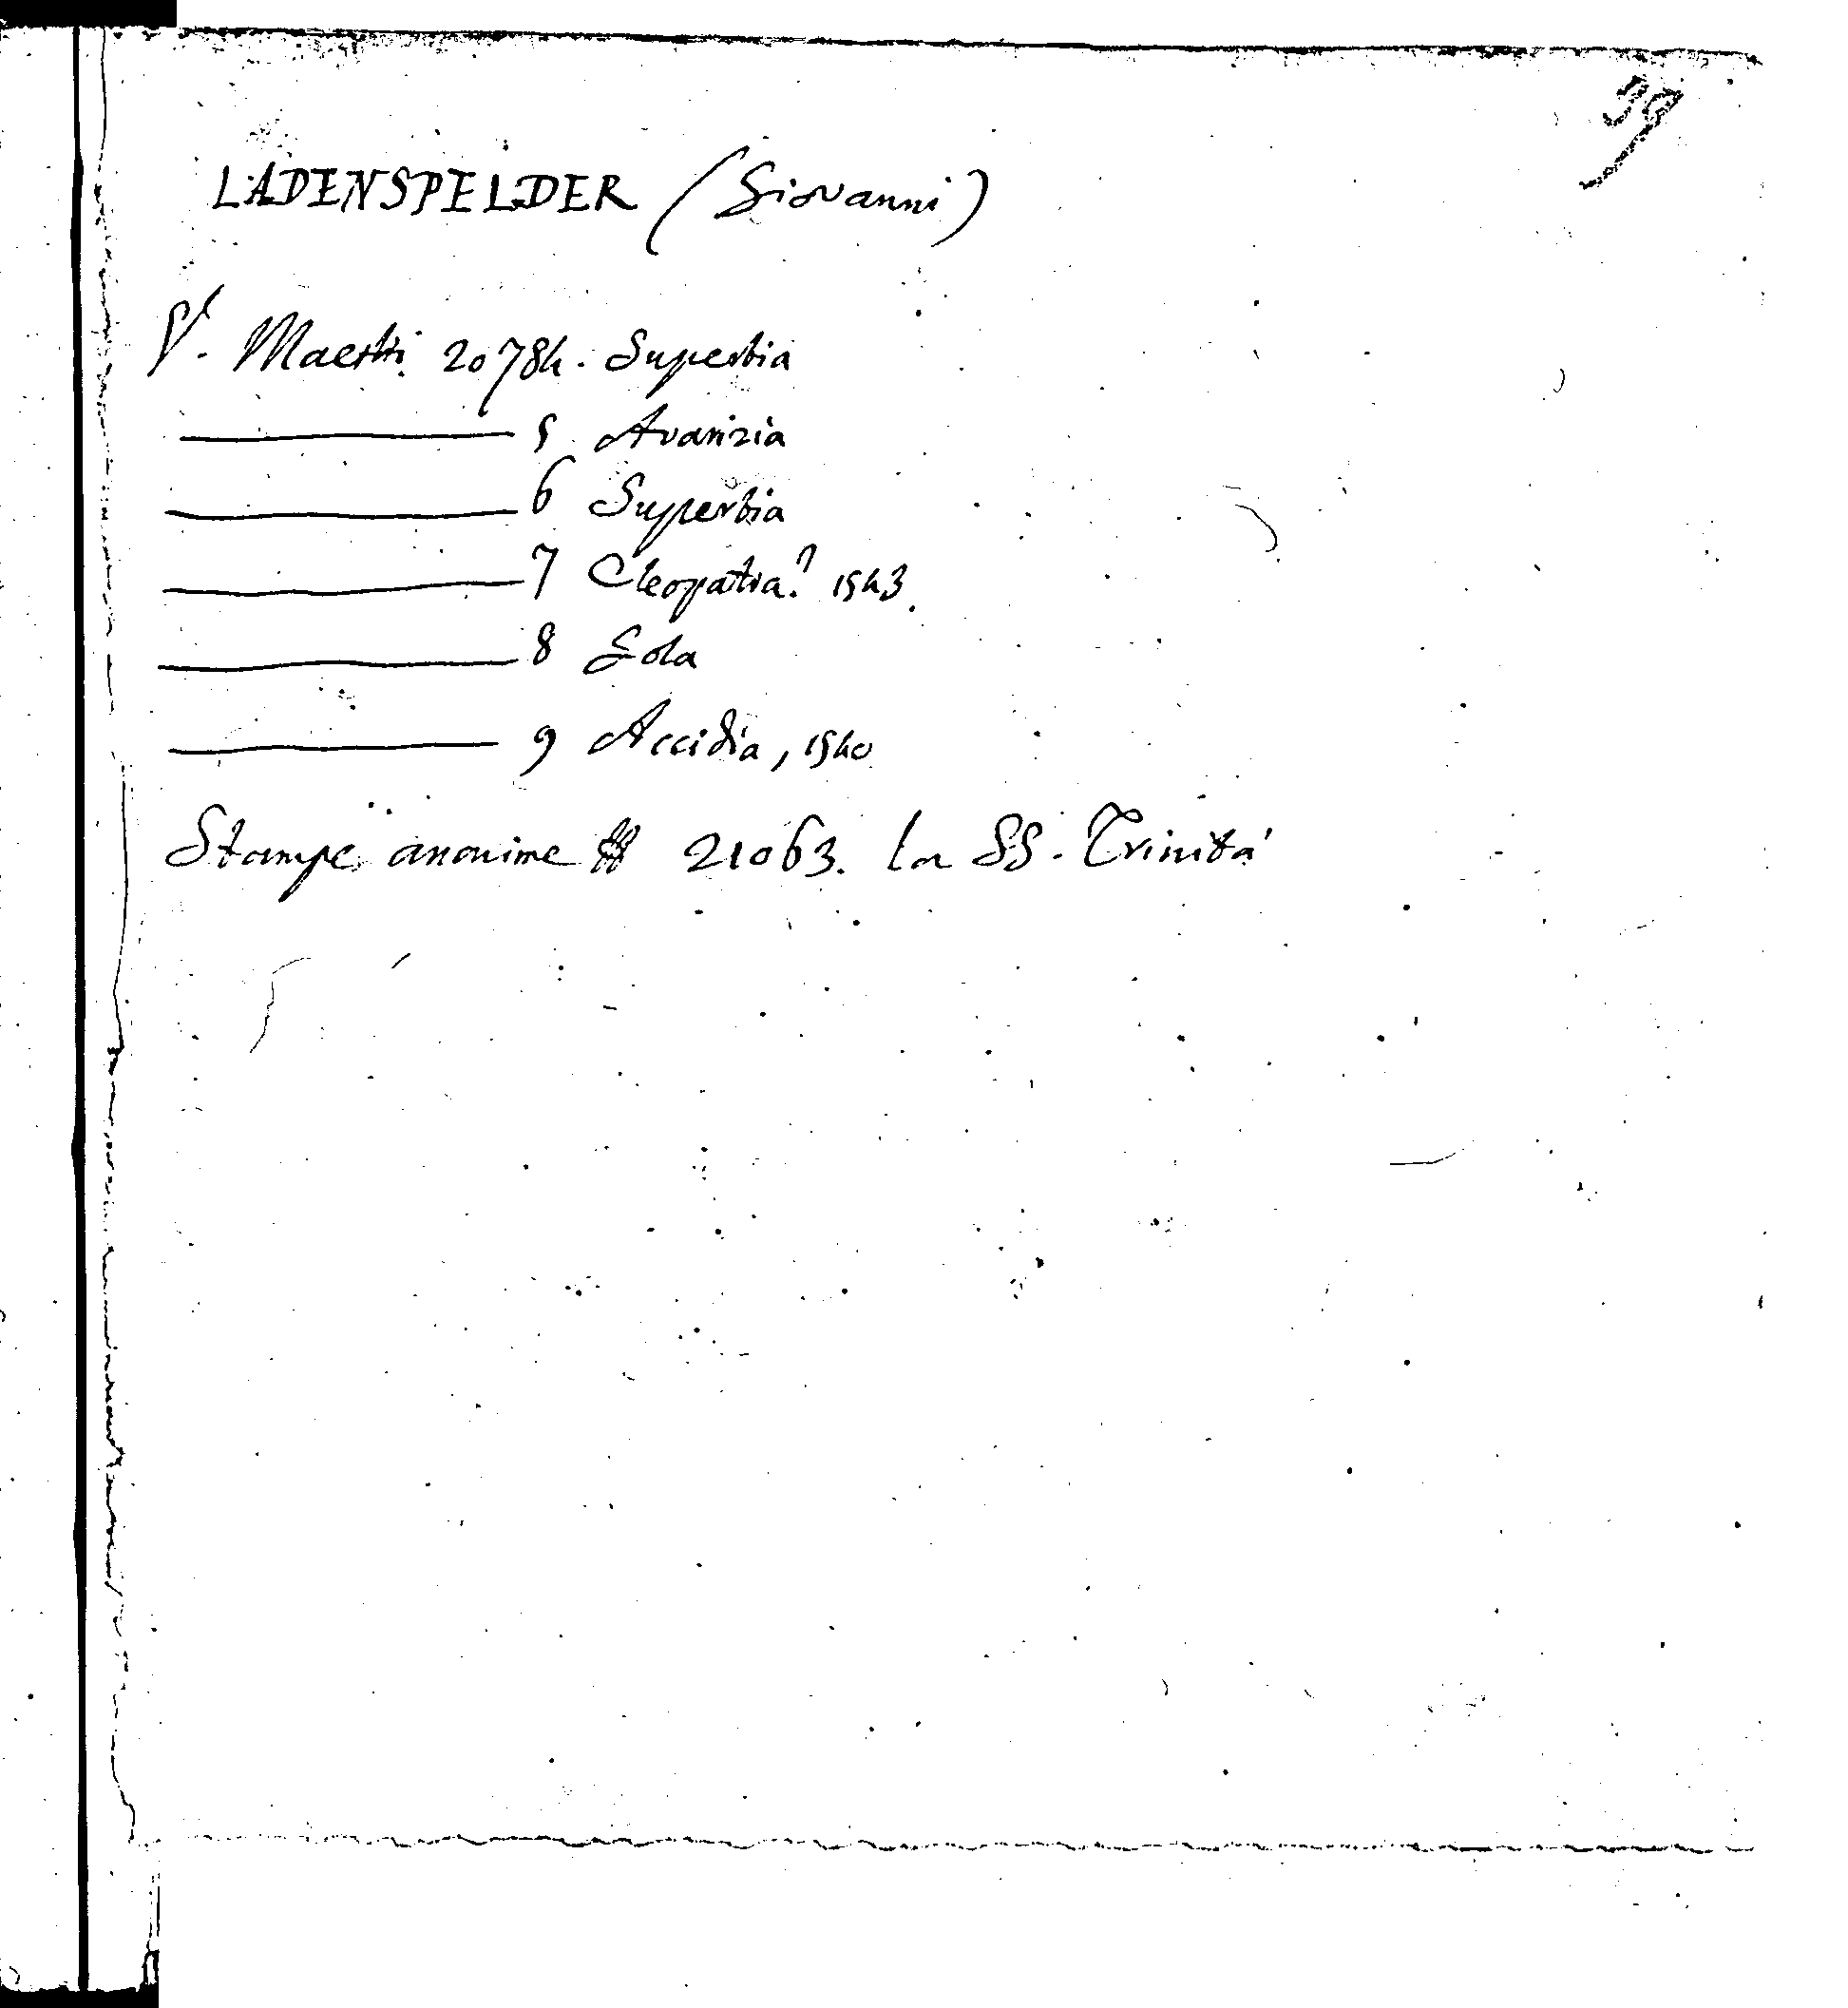 39
LADENSPELDER (Giovanni)
V. Maestri 20784. Superbia
5 Avarizia
6 Superbia
7 Cleopatra? 1543.
8 Gola
9 Accidia, 1540
Stampe anonime 21063. La SS. Trinitá